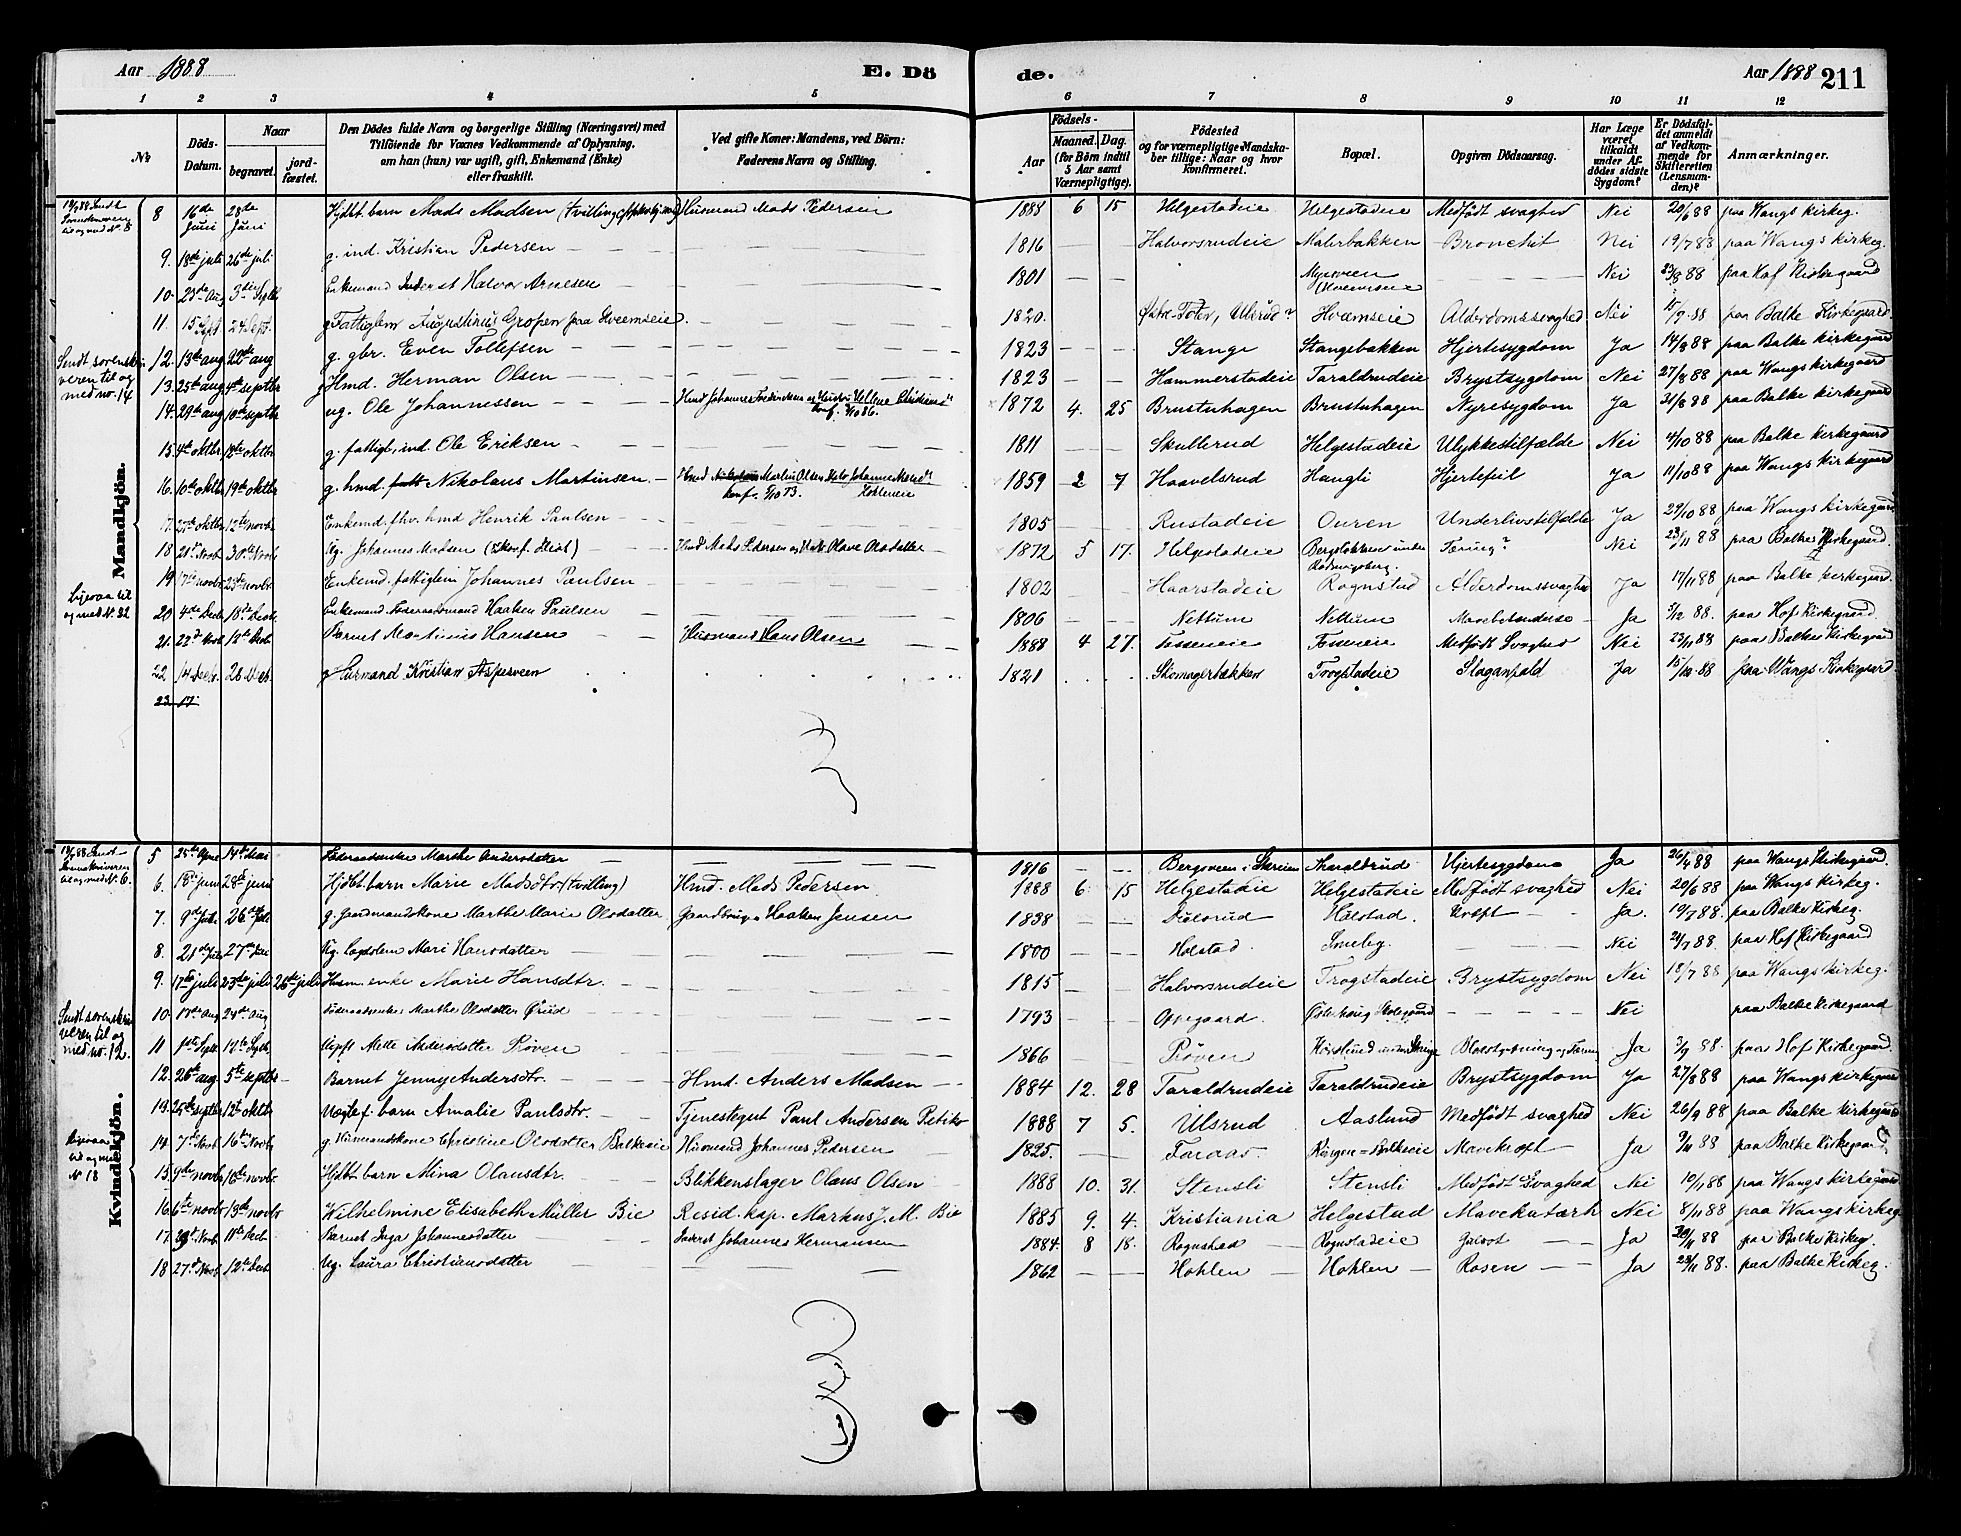 Aar 1888 E. Dö de. Aar 1888 211
1 2 3 4 5 6 7 8 9 10 11 12
No.
Döds-Datum.
Naar
begravet.
jordfæstet.
Den Dödes fulde Navn og borgerlige Stilling (Næringsvei) med
Tilföiende for Voxnes Vedkommende af Oplysning,
om han (hun) var ugift, gift, Enkemand (Enke)
eller fraskilt.
Ved gifte Koner: Mandens, ved Börn:
Faderens Navn og Stilling.
Födsels-
Aar
Maaned. Dag.
(for Börn indtil
5 Aar samt
Værnepligtige).
Födested
og for værnepligtige Mandska-
ber tillige: Naar og hvor
konfirmeret.
Bopæl.
Opgiven Dödsaarsag.
Har Læge
været
tilkaldt
under Af-
dödes sidste
Sygdom?
Er Dödsfal-
det anmeldt
af Vedkom-
mende for
Skifteretten
(Lensman-
den)?
Anmærkninger.
Mandkjön.
8 16de Juni 28de Juni Hjdbt. barn Mads Madsen Husmand Mads Pedersen 1888 6 15 Helgestadeie Helgestadeie Medfödt svaghed Nei 20/6 88 paa Wangs kirkeg.
9. 18de juli 26de juli g. ind. Kristian Pedersen 1816 Halvorsrudeie Malerbakken Bronchit Nei 19/7 88 paa Wangs kirkeg.
10. 3die Septb. Enkemand Inderst Halvor Arnesen 1801 Nei 23/8 88 paa Hof Kirkegaard
11. 15 Sept. 24 Sept. g Fattiglem Augustinus Gropen fra Hveemseie 1820. Östre Toten, Ulsrud? Hveemseie Alderdomssvaghed Nei paa Balke Kirkegaard.
Sendt sorenskri-
veren til og
med no. 14
12. 13de aug 22de aug g. gbr. Even Tollefsen 1823 Stange Stangebakken Hjertesygdom Ja 14/8 88 paa Balke kirkegaard
13. 25de aug 4de septbr g Hmd. Herman Olsen 1823 Hammerstadeie Taraldrudeie Brystsygdom Nei 27/8 88 paa Wangs kirkegaard
14. 29de aug 10de septbr ug. Ole Johannessen 1872 4. 25 Brustuhagen Brustuhagen Nyresygdom Ja 31/8 88 paa Balke kirkegaard
15. 4de oktbr. 18de oktbr g. fattigl., ind. Ole Eriksen 1811 Skullerud Helgestadeie Ulykkestilfælde Nei 4/10 88 paa Balke kirkegaard
16. 10de oktbr 19de oktbr g. hmd. Nikolaus Martinsen. 1859 2 7 Haavelsrud Haugli Hjertefeil Ja 11/10 88 paa Wangs kirkegaard
17. 27de oktbr 12te novbr. Enkemd. fhv. hmd Henrik Paulsen 1805 Rustadeie Ouren Underlivstilfælde Ja 29/10 88 paa Wangs kirkegaard
18 30te Novb. Ug. Johannes Madsen Hmd Mads Pedersen og Olave Olsdatter 1872 5 17. Helgestadeie Tæring? Nei 23/11 88 paa Balke Kirkegaard.
19 17de novbr. 23de novbr. Enkemd. fattiglem Johannes Paulsen 1802 Haarstadeie Rognstad Alderdomssvaghed Ja 17/11 88 paa Balke kirkegaard.
Ligesaa til
og med N. 22
20 4de Decb. 18de Decb. Enkemand Föderaadsmand Haaken Paulsen 1806 Nettum Nettum Mavebetændelse Ja 88. paa Hof Kirkegaard
21. 22de Novb 12te Decb. Barnet Martinius Hansen Husmand Hans Olsen 1888 4 27. Fosseneie Fosseneie Medfödt Svaghed Nei 23/11 88 paa Balke Kirkegaard
22 14 Decbr. 28 Decb. g Husmand Kristian Asperveen 1821 Skomagerbakken Trogstadeie Slaganfald Ja 15/12 88 paa Wangs Kirkegaard.
23 17
Kvindekjön.
5 25de April 14de Mai Föderaadsenke Marthe Andersdatter 1816 Bergsveen i Skreien Tharaldrud Hjertesygdom Ja 26/4 88 paa Wangs Kirkegaard.
6. 18de juni 28de juni Hjdbt. barn Marie Madsdtr (tvilling) Hmd. Mads Pedersen 1888 6 15 Helgestadeie Helgestadeie Medfödt svaghed Nei 20/6 88 paa Wangs kirkeg.
7. 9de Juli 26de Juli g. Gaardmandskone Marthe Marie Olsdatter Gaardbruger Haaken Jensen 1838 Dulsrud Holstad. Kræft Ja. 19/7 88. paa Balke Kirkeg.
8. 21de Juli 27de Juli Ug. Lægdslem Mari Hansdatter 1800 Holstad. Smeby. Nei 24/7 88. paa Hof Kirkegaard
9. 17de juli 23de juli 26de juli Husm. enke Marie Hansdtr. 1815 Halvorsrudeie Trogstadeie Brystsygdom Nei 18/7 88 paa Wangs kirkeg.
Sendt sorenskri-
veren til og
med no. 12.
10. 17de aug 24de aug Föderaadsenke Marthe Olsdatter 1793 Oppegaard. Nei paa Balke Kirkegaard
11 1ste Septb. 12te Septb. Ugift Mette Andersdatter Pröven 1866 Pröven Blodstyrtning og Tæring Ja 3/9 88. paa Hof Kirkegaard.
12. 26de aug. 5te septbr Barnet Jenny Andersdtr. Hmd. Anders Madsen 1884 12. 28 Taraldrudeie Taraldrudeie Brystsygdom Ja 27/8 88 paa Wangs kirkegaard
13. 25de septbr 12te oktbr Uægtef. barn Amalie Paulsdtr. Tjenestegut Paul Andersen 1888 7 5. Ulsrud Aaslund Medfödt svaghed Nei 26/9 88 paa Balke kirkegaard
Ligesaa
til og med
N 18
14 7de Novb. 16de Novb. g. Husmandskone Christine Olsdatter Balkeeie Husmand Johannes Pedersen 1825. Faraas Kongen-Balkeeie Mavekræft Ja 9/11 88 paa Balke Kirkegaard
15. 9de novbr 16de novbr. Hjdbt. barn Mina Olausdtr. Blikkenslager Olaus Olsen 1888 10. 31. Stensli Stensli Medfödt Svaghed Nei 10/11 88 paa Wangs kirkegaard
16. 6te novbr 13de novbr Wilhelmine Elisabeth Müller Bie Resid. kap. Markus J. M. Bie 1885 9. 4. Kristiania Helgestad Mavekatarh Nei 8/11 88 paa Wangs kirkeg.
17. 11te Decb. Barnet Inga Johannesdatter Inderst Johannes Hermansen 1884. 8 18. Rognstad Rognstadeie Ja 88 paa Balke Kirkeg.
18 27de Novb. 12te Decb Ug. Laura Christiansdatter 1862 Hohlen Hohlen Rosen Ja 28/11 88. paa Balke Kirkeg.